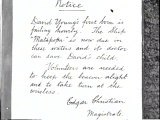 Notice
David Young's first born is
failing hourly. The ship
"Mataroa" is now due in
these waters and its doctor
can save David's child.
Volunteers are needed
to keep the beacon alight
and to take turn at the
wireless
Edgar Christian
Magistrate